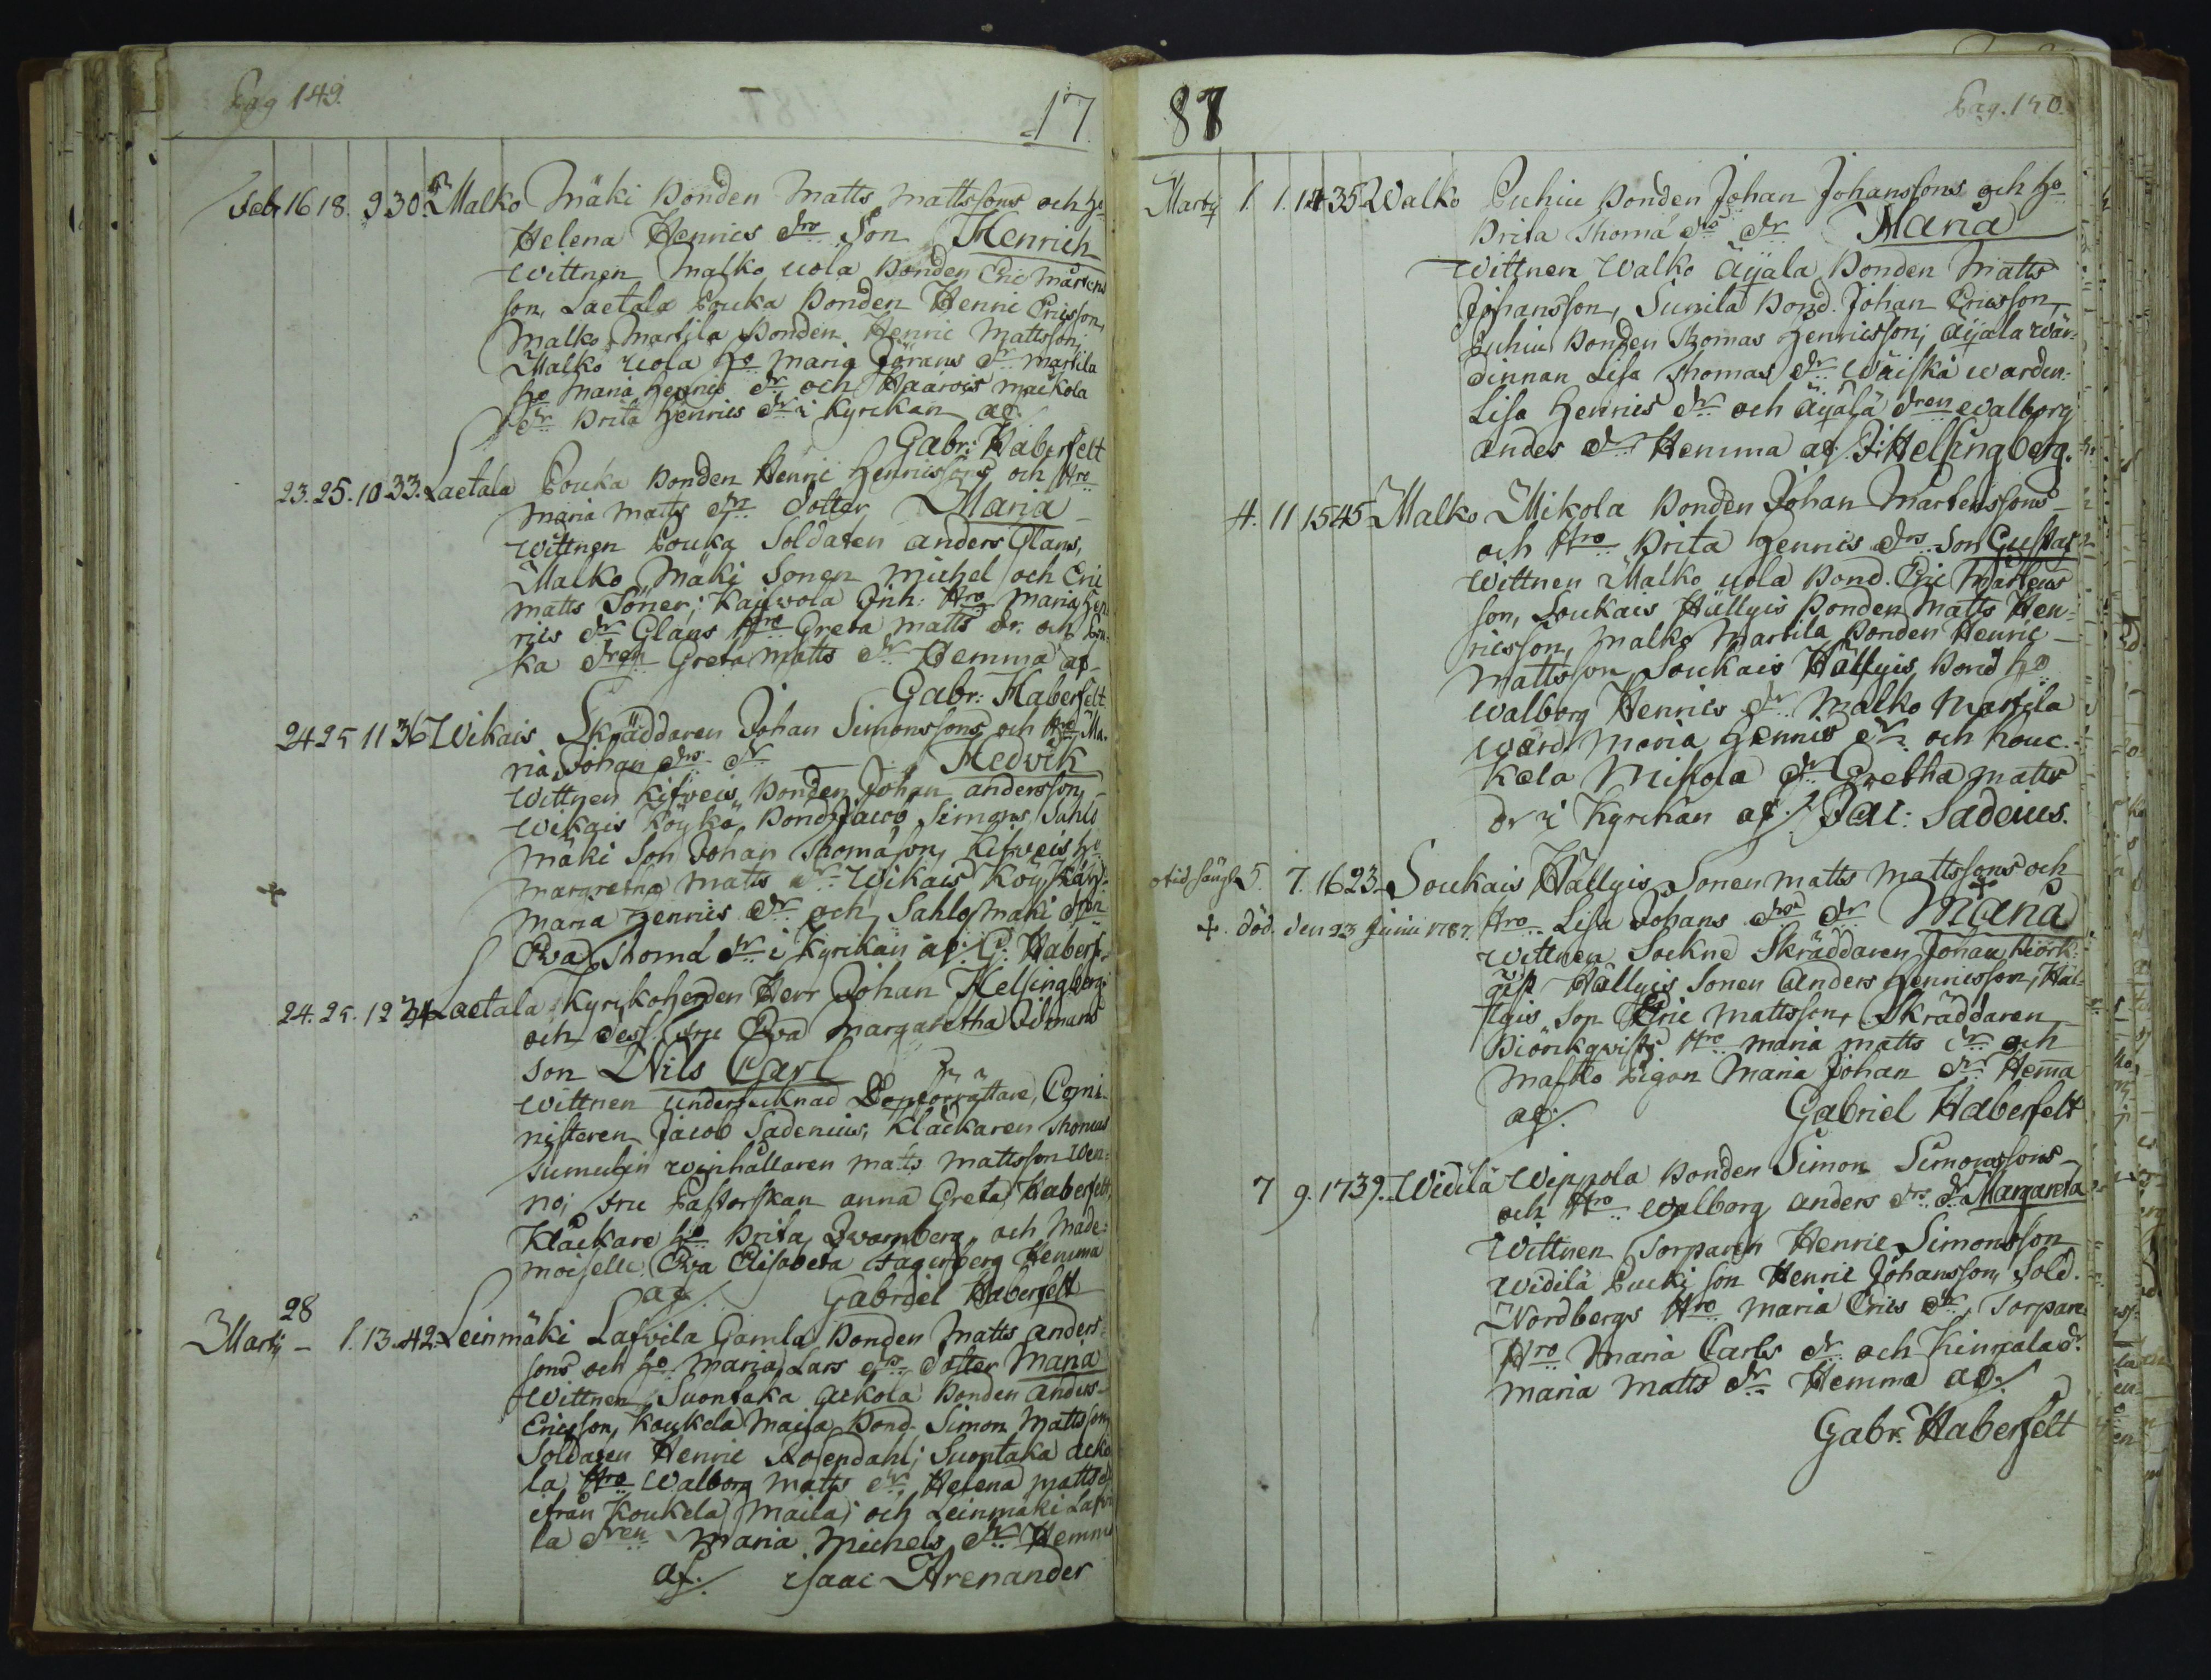 Pag 149.
17
Feb. 16 18. 9 30. Malko Mäki Bonden Matts Mattssons och Ho
Helena Henrics dro Son Henrich
Wittnen Malko uola Bonden Eric Mårtens
son, Laetala Pouka Bonden Henric Ericsson,
Malko Martila Bonden Henric Mattsson;
Malko uola Ho Maria Jörans dr Martila
Ho Maria Henrics dr och Haarois Maickola
dr Brita Henrics dr i Kyrckan af
Gabr: Haberfelt
23. 25. 10 33. Laetala Pouka Bonden Henric Henricssons och Hro
Maria Matts dr dotter Maria
Wittnen Pouka Soldaten Anders Glans,
Malko Mäki Sonen Michel och Eric
Matts Söner; Kaiwola Inh: Hro Maria Hen
rics dr Glans Hro Greta Matts dr. och Pou
ka dren Greta Matts dr Hemma af
Gabr: Haberfelt
24 25 11 36 Wikais Skräddaren Johan Simonssons och Hro Ma.
ria Johan drs dr Hedvik
Wittnen Kifveis Bonden Johan Andersson,
Wikais Köykä Bond Jacob Simons Sahlo
mäki Son Johan Thomasson, Kifveis Ho
Margretha Matts dr Wikais Köykä
Maria Henrics dr och Sahlomäki dren
Eva Thoma dr i Kyrckan af G: Haberf.
24. 25. 12 34 Laetala Kyrckoherden Herr Johan Helsingberg
och dess Fru Eva Margaretha Idmans
Son Nils Carl
Wittnen undertecknad Dopförrättare, Comi-
nisteren Jacob Sadenius, Klåckaren Thomas
Sumulin Wejnhållaren Matts Mattsson Wen:
no; Fru Pastorskan Anna Greta Haberfelt,
Klåckare Ho Brita Qvarnberg och Made:
moiselle Eva Elisabeta Fagerberg Hemma
af Gabriel Haberfelt
28
Martij - 1. 13. 42. Leinmäki Lafvila Gamla Bonden Matts Anders
sons och Ho Maria Lars drs dotter Maria
Wittnen Suontaka Ackola Bonden Anders
Ericsson, Koukela Maila Bond. Simon Mattsson,
Soldaten Henric Rosendahl; Suontaka Acko
la Hro Walborg Matts dr Helena Matts d
ifrån Koukela Maila; och Leinmäki Lafvi
la dren Maria Michels dr Hemma
af. Isaac Arenander
87
Pag. 150.
Martij 1. 1. 14 35 Walko Puhiu Bonden Johan Johanssons och Ho
Brita Thoma drs dr Maria
Wittnen Walko Äijälä Bonden Matts
Johansson, Sunila Bond. Johan Ericsson,
Puhiu Bonden Thomas Henricsson; Äijälä wär-
dinnan Lisa Thomas dr Wäiskä wärdin:
Lisa Henrics dr och Äijälä dren Walborg
Anders dr Hemma af J: Helsingberg.
4. 11 15 45 Malko Mikola Bonden Johan Mårtenssons
och Hro Brita Henrics drs Son Gustaf
Wittnen Malko uola Bond. Eric Mårtens
son, Loukais Hällgis Bonden Matts Hen-
ricsson, Malko Martila Bonden Henric
Mattsson, Loukais Hällgis Bond Ho
Walborg Henrics dr Malko Martila
Wärd Maria Henrics dr och Kouc.
kela Mikola dr Gretha Matts
dr i Kyrckan af Jac: Sadenius.
5. 7. 16 23. Loukais Hällgis Sonen Matts Mattssons och
+. död. den 23 Junii 1787. Hro Lisa Johans drs dr Maria
Wittnen Sockne Skräddaren Johan Biörk:
qvist Hällgis Sonen Anders Henricsson, Häl-
lgis Son Eric Mattsson, Skräddaren
Biörkqvists Hro Maria Matts dr och
Malko Pigan Maria Johan dr Hemma
af. Gabriel Haberfelt
7 9. 17 39. Widilä Wippola Bonden Simon Simonssons
och Hro Walborg Anders drs dr Margareta
Wittnen Torparen Henric Simonsson
Widilä Pucki Son Henric Johansson, Sold.
Nordbergs Hro Maria Erics dr, Torpare
Hro Maria Carls dr och Kinnala dr
Maria Matts dr Hemma af.
Gabr. Haberfelt